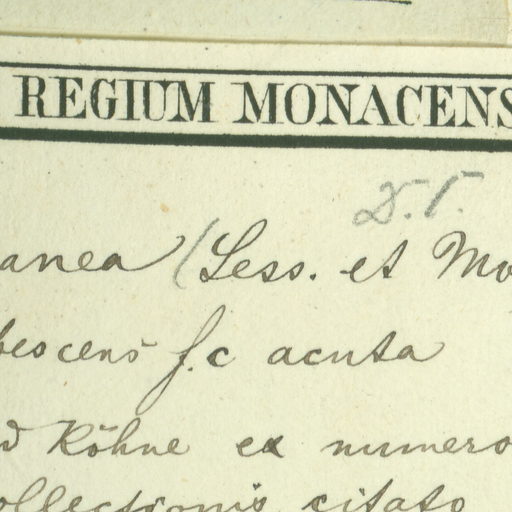 REGIUM MONACENS
D. T.
anea (Less. et Mo
bescens f. c acuta
d Köhne ex numero
ollectionis citato